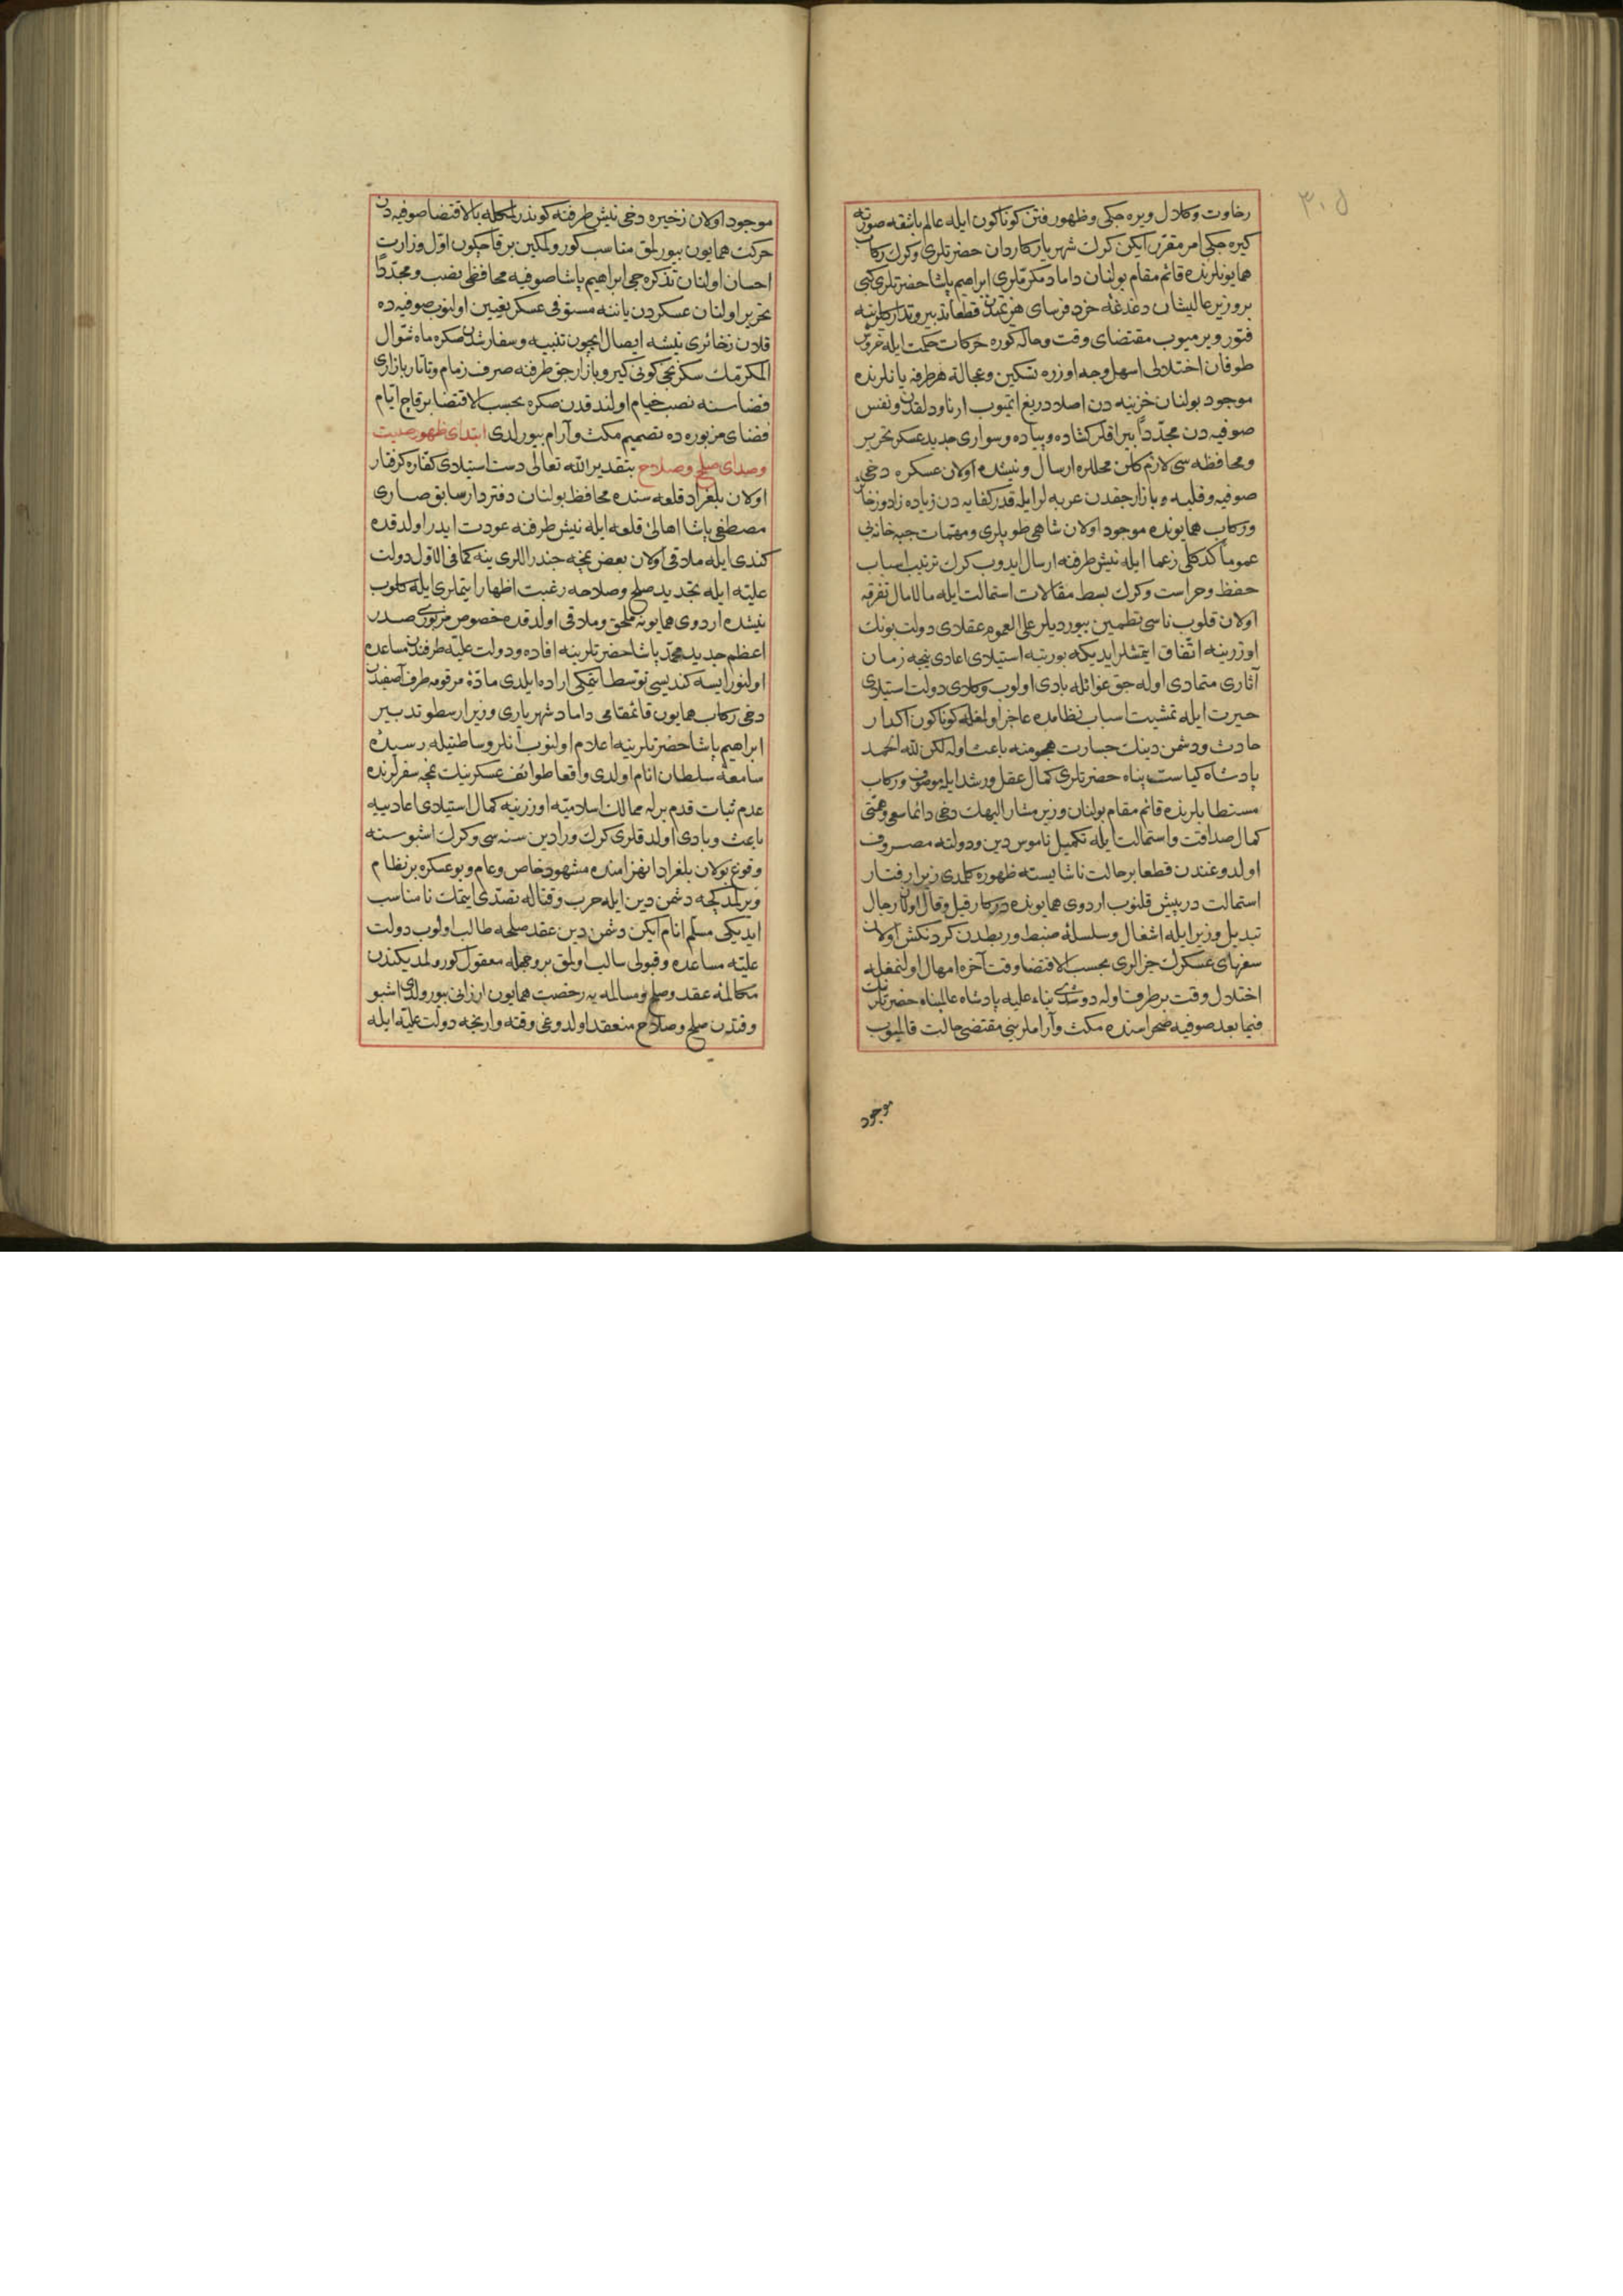 ٣٠٥
رخاوت وكلال ويره جكى وظهور فتن كوناكون ايله عالم باشقه صورته
كيره جكى امر مقرر ايكن كرك شهريار كاردان حضرتلرى وكرك ركاب
همايونلرنده قائم مقام بولنان داماد مكرملرى ابراهيم پاشا حضرتلرى كبى
بر وزير عاليشان دغدغهٔ خرد فرساى هزيمتدن قطعا تدبير وتداركلرينه
فتور ويرميوب مقتضاى وقت وحاله كوره حركات حكمت ايله خروش
طوفان اختلالى اسهل وجه اوزره تسكين وعجالة هر طرفه يانلرنده
موجود بولنان خزينه دن اصلا دريغ اتميوب ارناودلقدن ونفس
صوفيه دن مجددا بيراقلر كشاده وپياده وسوارى جديد عسكر تحرير
ومحافظه سى لازم كلن محللره ارسال ونيشده اولان عسكره دخى
صوفيه وفلبه وبازارجقدن عربه لر ايله قدر كفايه دن زياده زاد وزخائر
وركاب همايونده موجود اولان شاهى طوپلرى ومهمات جبه خانه يى
عموما كدكلى زعما ايله نيش طرفنه ارسال ايدوب كرك ترتيب اسباب
حفظ وحراست وكرك بسط مقالات استمالت ايله مالامال تفرقه
اولان قلوب ناسى تطمين بيورديلر على العموم عقلاى دولت بونك
اوزرينه اتفاق ايتمشلر ايديكه بو رتبه استيلاى اعادى نيجه زمان
آثارى متمادى اوله جق غوائله بادى اولوب وكلاى دولت استيلاى
حيرت ايله تمشيت اسباب نظامده عاجز اولمغله كوناكون اكدار
حادث ودشمن دينك جسارت هجومنه باعث اوله لكن لله الحمد
پادشاه كياست پناه حضرتلرى كمال عقل ورشد ايله موصوف وركاب
مستطابلرنده قائم مقام بولنان وزير مشار اليهك دخى دائما سعى وهمتى
كمال صداقت واستمالت ايله تكميل ناموس دين ودولته مصروف
اولدوغندن قطعا بر حالت ناشايسته ظهوره كلمدى زيرا رفتار
استمالت درپيش قلنوب اردوى همايونده دركار قيل وقال اولان رجال
تبديل وزير ايله اشغال وسلسلهٔ ضبط وربطدن كردنكش اولان
سفهاى عسكرك جزالرى بحسب الاقتضا وقت آخره امهال اولنمغله
اختلال وقت بر طرف اوله دوشدى بناء عليه پادشاه عالمپناه حضرتلرينك
فيما بعد صوفيه صحراسنده مكث وآراملرينى مقتضى حالت قالميوب
موجود
موجود اولان زخيره دخى نيش طرفنه كوندرلمكله بالاقتضا صوفيه دن
حركت همايون بيورلمق مناسب كورولمكين بر قاچ كون اول وزارت
احسان اولنان تذكره جى ابراهيم پاشا صوفيه محافظى نصب ومجددا
تحرير اولنان عسكردن ياننه مستوفى عسكر تعيين اولنوب صوفيه ده
قلان زخائرى نيشه ايصال ايچون تنبيه وسفارشدن صكره ماه شوال
المكرمك سكزنجى كونى كيرو بازارجق طرفنه صرف زمام وتاتار بازارى
فضاسنه نصب خيام اولندقدن صكره بحسب الاقتضا بر قاچ ايام
فضاى مزبوره ده تصميم مكث وآرام بيورلدى ابتداى ظهور صيت
وصداى صلح وصلاح بتقدير الله تعالى دست استيلاى كفاره كرفتار
اولان بلغراد قلعه سنده محافظ بولنان دفتردار سابق صارى
مصطفى پاشا اهالئ قلعه ايله نيش طرفنه عودت ايدر اولدقده
كندى ايله ملاقى اولان بعض نمچه جنداللرى ينه كما فى الاول دولت
عليه ايله تجديد صلح وصلاحه رغبت اظهار ايتملرى ايله كلوب
نيشده اردوى همايونه ملحق وملاقى اولدقده خصوص مزبورى صدر
اعظم جديد محمد پاشا حضرتلرينه افاده ودولت عليه طرفندن مساعده
اولنور ايسه كنديسى توسط ايتمكى اراده ايلدى مادهٔ مرقومه طرف آصفيدن
دخى ركاب همايون قائمقامى داماد شهريارى وزير ارسطو تدبير
ابراهيم پاشا حضرتلرينه اعلام اولنوب آنلر وساطتيله رسيدهٔ
سامعهٔ سلطان انام اولدى واقعا طوائف عسكرينك نيجه سفرلرنده
عدم ثبات قدم برله ممالك اسلاميه اوزرينه كمال استيلاى اعاديه
باعث وبادى اولدقلرى كرك ورادين سنه سى وكرك اشبو سنه
وقوع بولان بلغراد انهزامنده مشهود خاص وعام وبو عسكره بر نظام
ويرلمدكچه دشمن دين ايله حرب وقتاله تصدى ايتمك نامناسب
ايديكى مسلم انام ايكن دشمن دين عقد صلحه طالب اولوب دولت
عليه مساعده وقبولى سالب اولمق بر وجهله معقول كورولمديكندن
مكالمهٔ عقد وصلح ومسالمه يه رخصت همايون ارزانى بيورولدى اشبو
وقتدن صلح وصلاح منعقد اولدوغى وقته وارنجه دولت عليه ايله